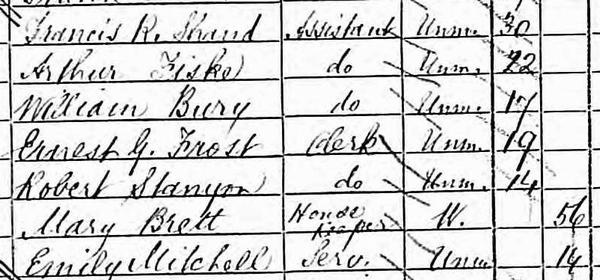 Francis R. Shand Assistant Unm. 30
Arthur Fiske do Unm. 22
William Bury do Unm. 17
Ernest G. Frost Clerk Unm. 19
Robert Stanyon do Unm. 14
Mary Brett House Keeper W. 56
Emily Mitchell Serv. Unm 14